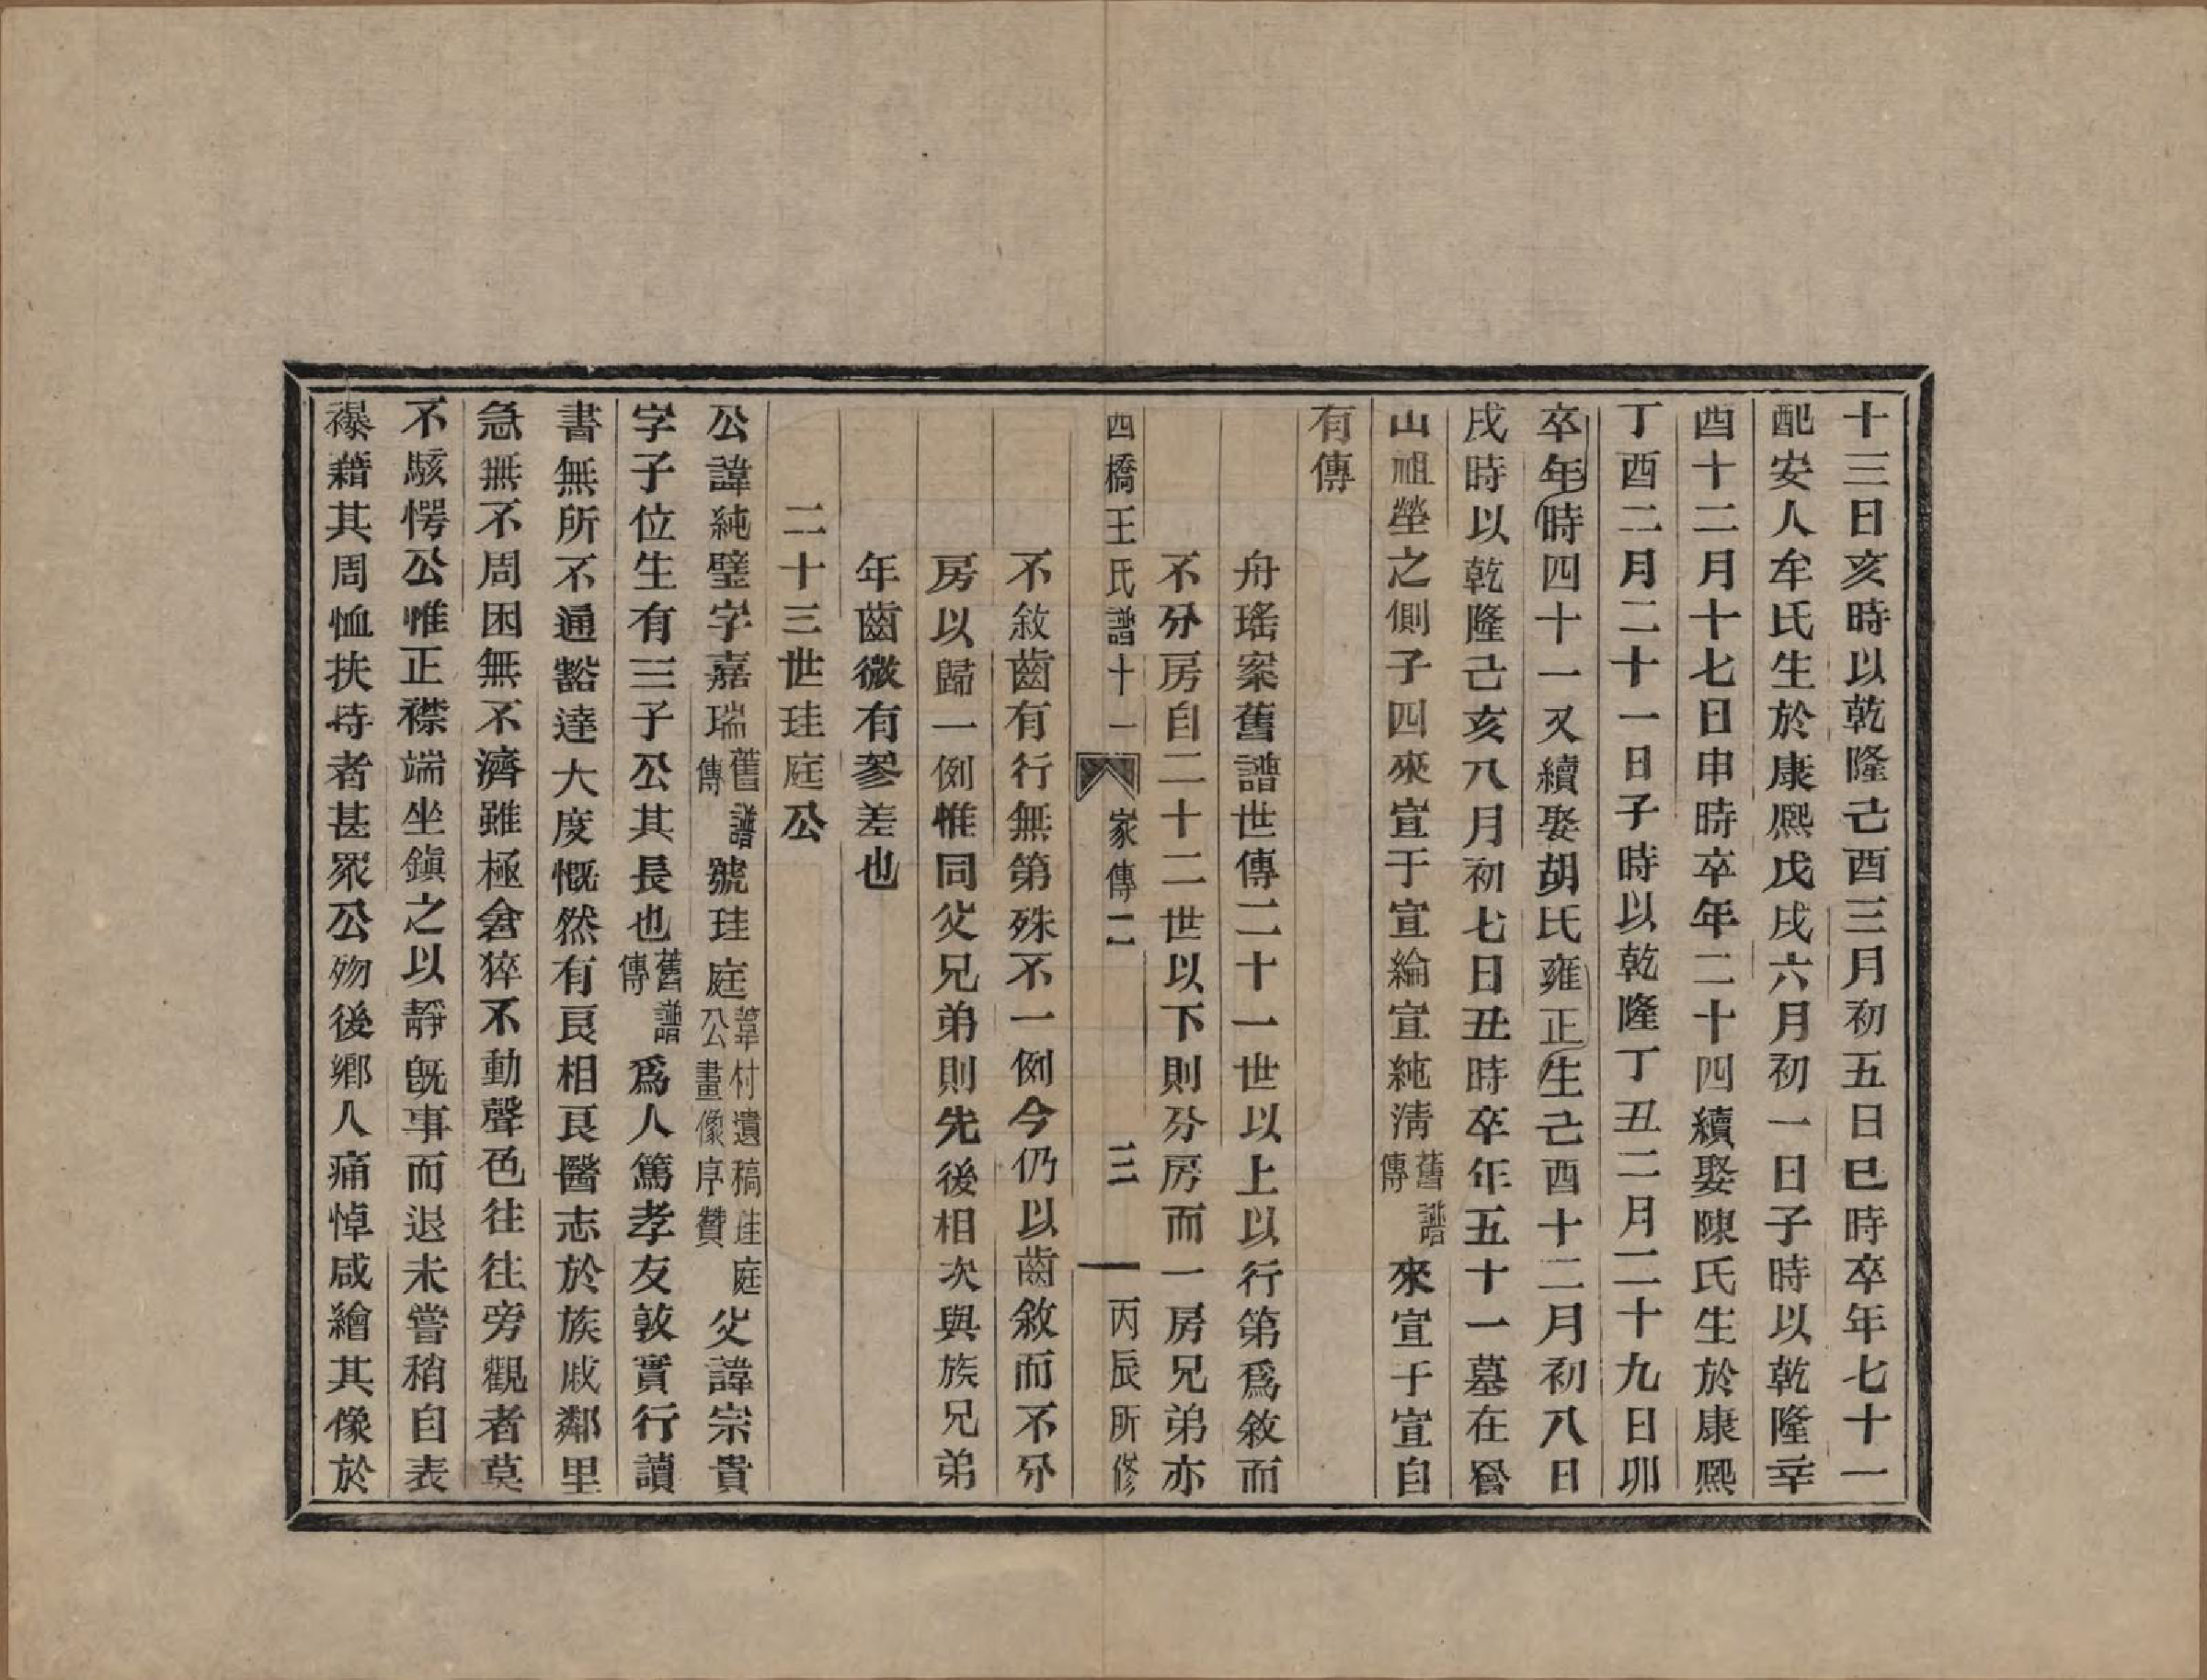 十三日亥時以乾隆己酉三月初五日巳時卒年七十一
配安人牟氏生於康熙戊戌六月初一日子時以乾隆辛
酉十二月十七日申時卒年二十四續娶陳氏生於康熙
丁酉二月二十一日子時以乾隆丁丑二月二十九日卯
卒年時四十一又續娶胡氏雍正生己酉十二月初八日
戌時以乾隆己亥八月初七日丑時卒年五十一墓在嶨
山祖塋之側子四來宣于宣綸宣純淸舊譜傳來宣于宣自
有傳
舟瑤案舊譜世傳二十一世以上以行第爲敘而
不分房自二十二世以下則分房而一房兄弟亦
西橋王氏譜十一 家傳二 三 丙辰所修
不敘齒有行無第殊不一例今仍以齒敘而不分
房以歸一例惟同父兄弟則先後相次與族兄弟
年齒微有參差也
二十三世珪庭公
公諱純璧字嘉瑞舊譜傳號珪庭葦村遺稿珪庭公畫像序贊父諱宗貴
字子位生有三子公其長也舊譜傳爲人篤孝友敦實行讀
書無所不通豁達大度慨然有良相良醫志於族戚鄰里
急無不周困無不濟雖極倉猝不動聲色往往旁觀者莫
不駭愕公惟正襟端坐鎭之以靜旣事而退未嘗稍自表
襮藉其周恤扶持者甚眾公歿後鄉人痛悼咸繪其像於